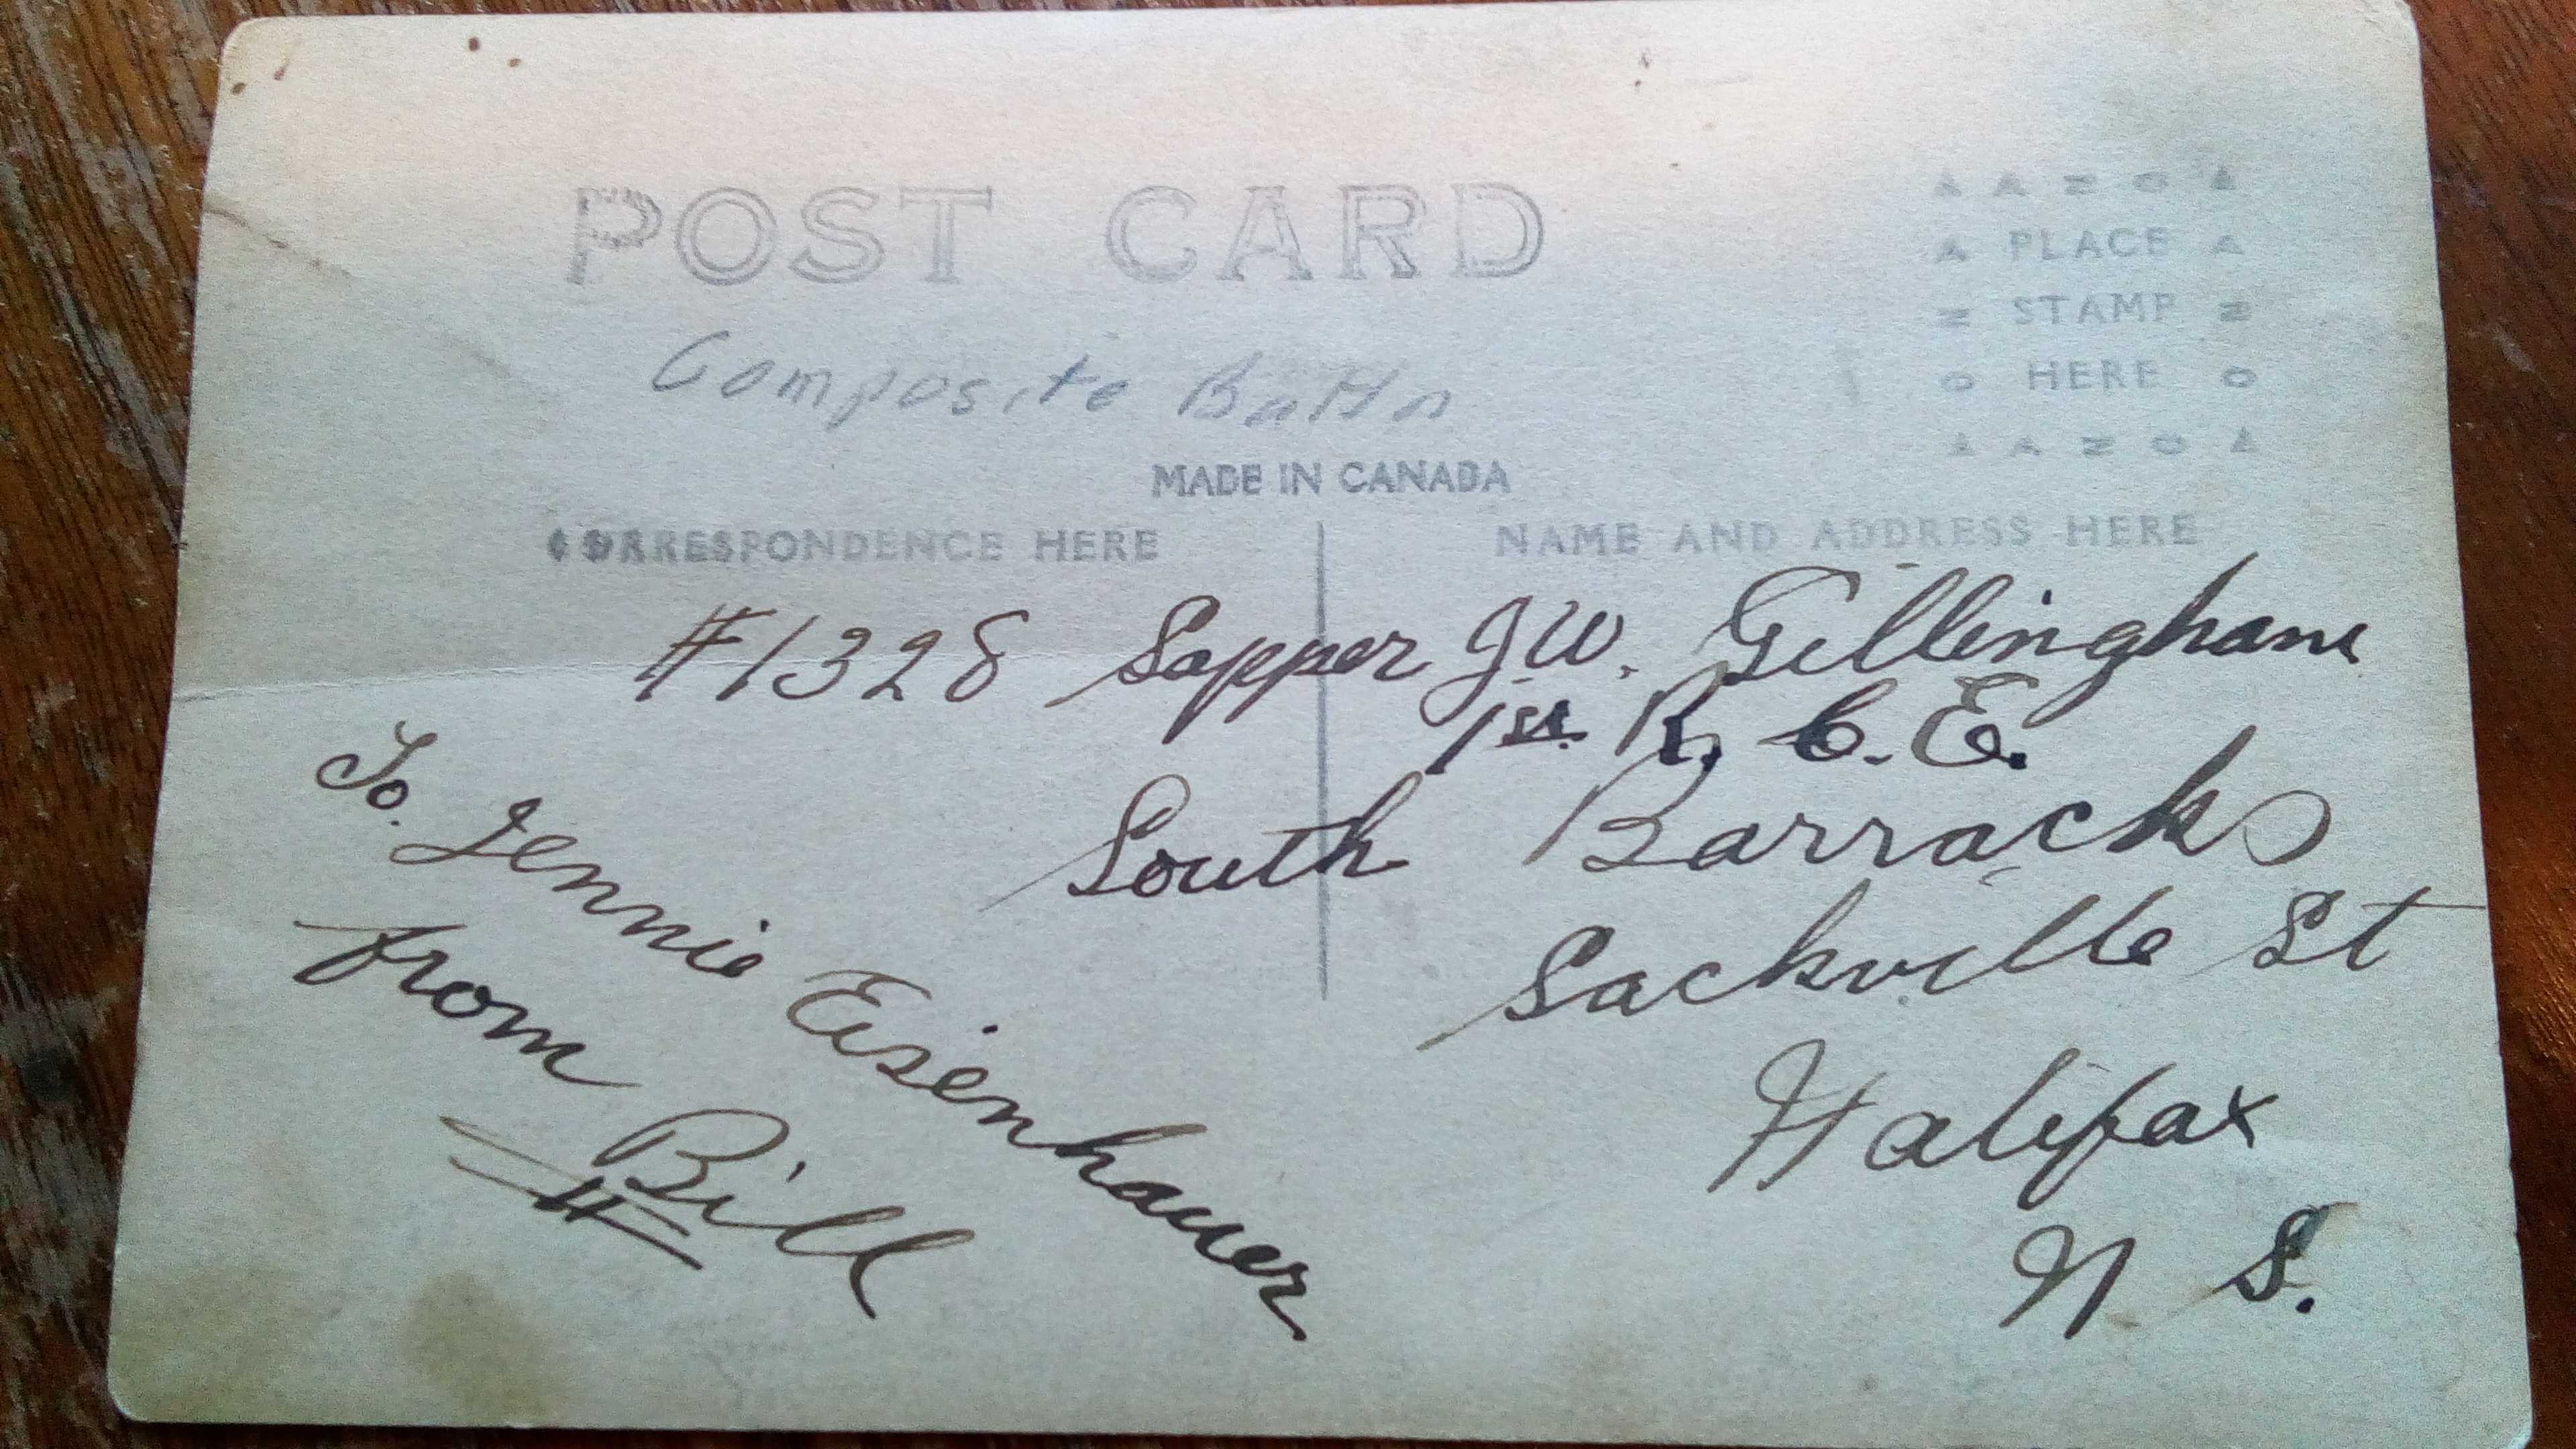 POST CARD
Composite Battn
MADE IN CANADA
CORRESPONDENCE HERE
NAME AND ADDRESS HERE
A A N O A
A PLACE A
N STAMP N
O HERE O
A A N O A
#1328 Sapper J.W. Gillingham
1st. R. C. E.
South Barracks
Sackville St
Halifax
N S.
To. Jennie Eisenhauer
from Bill